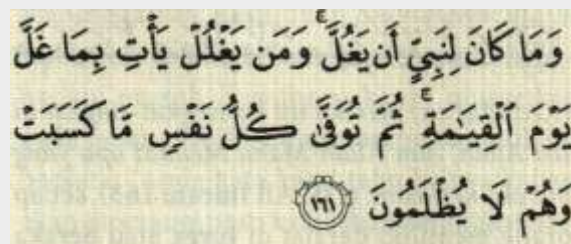 وَمَا كَانَ لِنَبِيٍّ أَن يَغُلَّ ۚ وَمَن يَغْلُلْ يَأْتِ بِمَا غَلَّ
يَوْمَ ٱلْقِيَـٰمَةِ ۚ ثُمَّ تُوَفَّىٰ كُلُّ نَفْسٍ مَّا كَسَبَتْ
وَهُمْ لَا يُظْلَمُونَ ١٦١